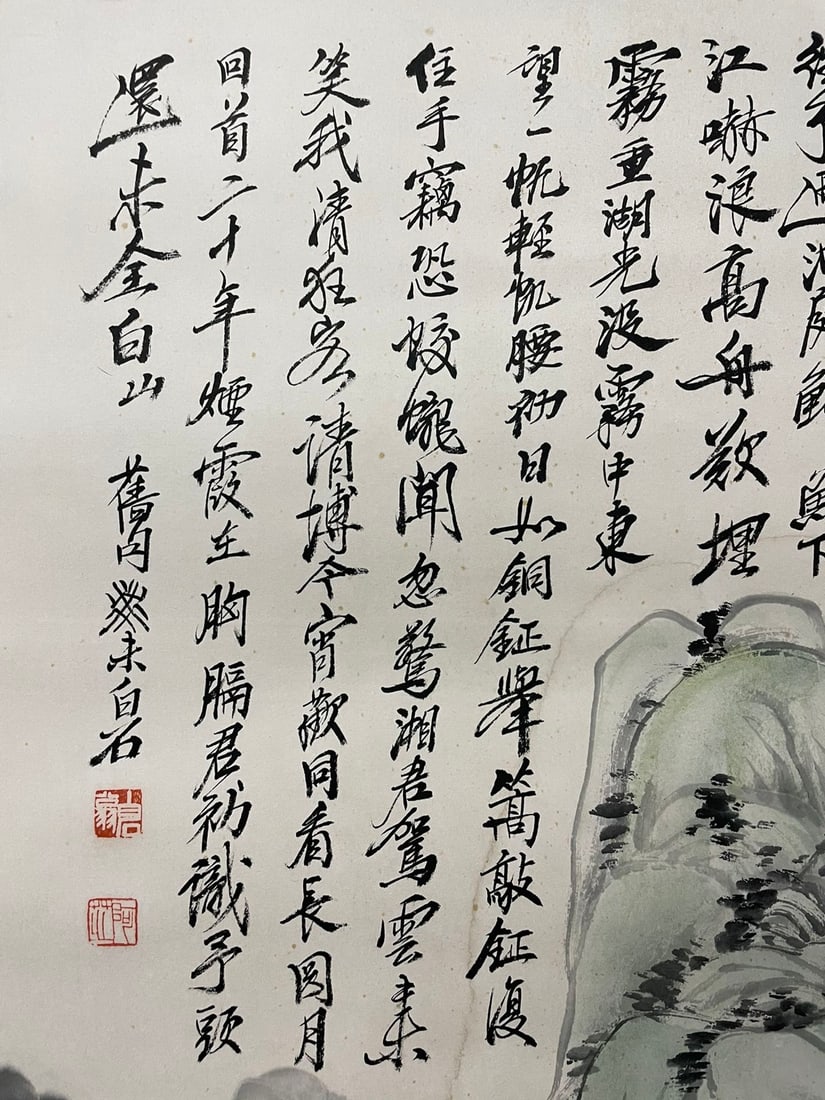 予過洞庭下
江嚇浪高舟欲埋
霧重湖光沒霧中東
望一帆輕帆腰初日如銅鉦舉篙敲鉦復
住手竊恐蛟龍聞忽驚湘君駕雲來
笑我清狂客請博今宵歡同看長圓月
回首二十年煙霞在胸膈君初識予頭
還未全白山 舊句癸未白石
阿芝